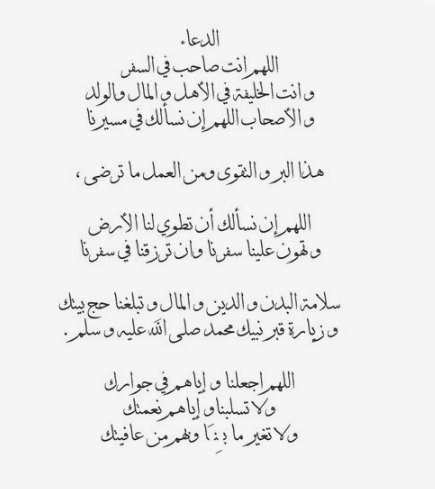 الدعاء
اللهم انت صاحب في السفر
وانت الخليفة في الأهل والمال والولد
والأصحاب اللهم إن نسألك في مسيرنا
هذا البر والتقوى ومن العمل ما ترضى ،
اللهم إن نسألك أن تطوي لنا الأرض
وتهون علينا سفرنا وان ترزقنا في سفرنا
سلامة البدن والدين والمال وتبلغنا حج بيتك
وزيارة قبر نبيك محمد صلى الله عليه وسلم .
اللهم اجعلنا وإياهم في جوارك
ولا تسلبنا وإياهم نعمتك
ولا تغير ما بِنَا وبهم من عافيتك